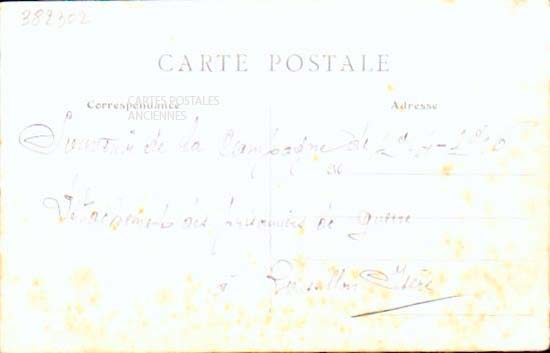 382302
CARTE POSTALE
Correspondance
CARTES POSTALES
ANCIENNES
Adresse
Souvenir de la Campagne de
M
Détachement des prisonniers de guerre
à Roussillon Isère